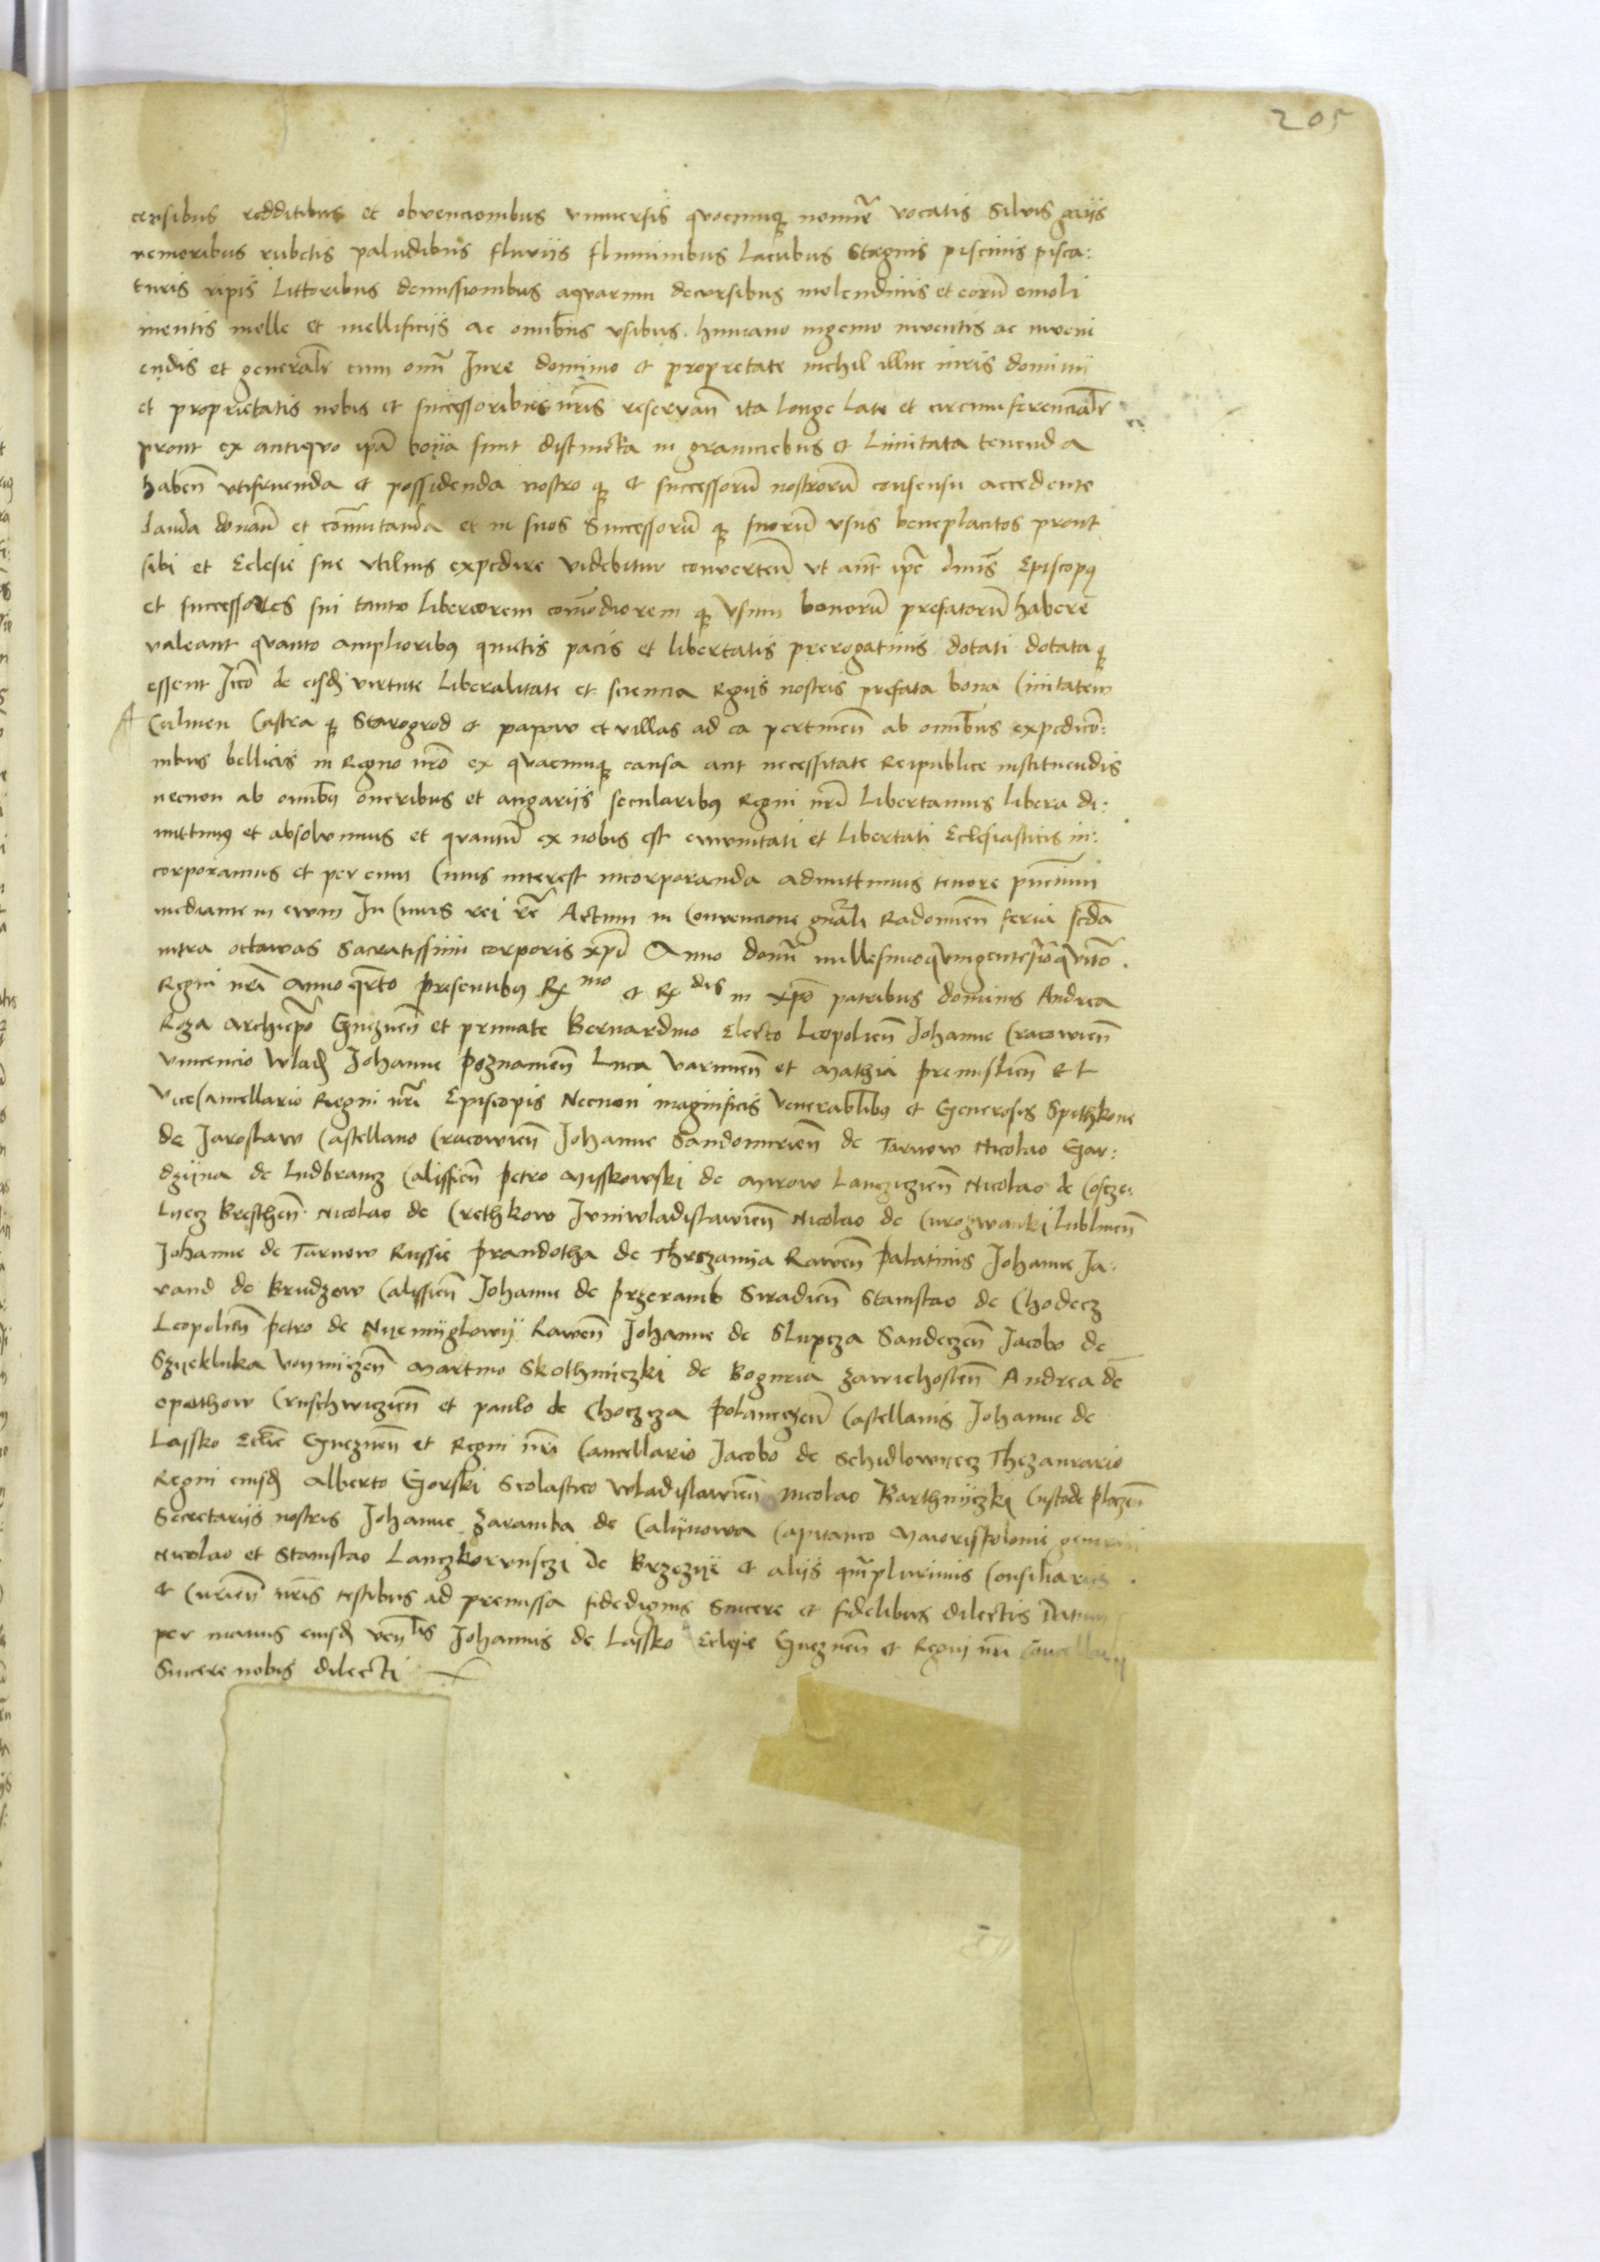 205
censibus redditibus et obvencionibus vniversis quocumq nomīe vocatis Silvis gaijs
nemoribus rubetis paludibus fluvijs fluminibus Lacubus Stagnis piscinis pisca:
turis ripis Littoribus demissionibus aquarum decursibus molendinis et eorū emoli
mentis melle et mellificijs ac omībus vsibus humano ingenio inventis ac inveni
endis et generalr cum omī Jure dominio et proprietate nichil illuc iuris dominij
et proprietatis nobis et successoribus nr̄is reservan̄ ita Longe Late et circumferencialr
prout ex antiquo ip̄a bona sunt distincta in granicebus et Limitata tenenda
haben̄ vtifruenda et possidenda nostro q et successorū nostrorū consensu accedente
danda donan̄ et com̄utanda et in suos Successorū q suorū vsus beneplacitos prout
sibi et Eclesie sue vtilius expedire videbitur converten̄ vt aūt ip̄e dn̄us Episcopus
et successores sui tanto liberiorem com̄odiorem q vsum bonorū prefatorū habere
valeant quanto amplioribus quietis pacis et libertatis prerogativis dotati dotata q
essent Iccō de eisd virtute Liberalitate et sciencia Regijs nostris prefata bona Civitatem
Culmen Castra q Starogrod et papow et villas ad ea pertinen̄ ab omībus expedicō:
nibus bellicis in Regno nrō ex quacumq causa aut necessitate Reipublice instituendis
necnon ab omībus oneribus et angarijs secularibus Regni nr̄i Libertamus libera di:
mittimus et absolvimus et quantū ex nobis est emunitati et libertati Eclesiasticis in:
corporamus et per eum Cuius interest incorporanda admittimus tenore pn̄cium
mediante in ewm In Cuius rei rē Actum in Convencione gnāli Radomien̄ feria scd̄a
intra octavas Sacratissimi corporis xpī Anno domī millesimoquingentesiōquītō
Regni nr̄i Anno qr̄to presentibus Rmo et Rdis in xpō patribus dominis Andrea
Roza Archiepō Gneznen̄ et primate Bernardino Electo Leopolien̄ Johanne Cracowien̄
vincencio Wlad Johanne poznanien̄ Luca varmien̄ et Mathia premislien̄ et
viceCancellario Regni nr̄i Episcopis Necnon magnificis venerablībus et Generosis Spithkone
de Jaroslaw Castellano Cracowien̄ Johanne Sandomirien̄ de Tarnow Nicolao Gar:
dzijna de Ludbrancz Calissien̄ petro Misskowski de Mirow Lancziczien̄ Nicolao de Cosczie
Lnecz Bresthen̄ Nicolao de Crethkow Juniwladislawien̄ Nicolao de Curozwanki Lublinen̄
Johanne de Tarnow Russie prandotha de Thrczanija Rawen̄ palatinis Johanne Ja:
rand de Brudzow Calissien̄ Johanne de przeramb Siradien̄ Stanislao de Chodecz
Leopolien̄ petro de Nijemijglowij Rawen̄ Johanne de Slupcza Sandeczen̄ Jacobo de
Szijekluka voynijczen̄ Martino Skothnijczki de Boguria Zawichosten̄ Andrea de
opathow Crusch wiczien̄ et paulo de Choczcza polaneczen̄ Castellanis Johanne de
Lassko Eclīe Gneznen̄ et Regni nr̄i Cancellario Jacobo de Schidlowyecz Thezaurario
Regni eiusd Alberto Gorski Scolastico wladislawien̄ Nicolao Barthnijczki Custode ploczen̄
Secretarijs nostris Johanne Zaramba de Calijnowa Capitaneo Maioris polonie generali
Nicolao et Stanislao Lanczkorunsczi de Brzezije et alijs qm̄plurimis Consiliarijs
et Curien̄ nr̄is testibus ad premissa fidedignis Sincere et fidelibus dilectis Datum
per manus eiusd ven̄lis Johannis de Lassko Eclesie Gneznen̄ et Regni nr̄i Cancellarij
Sincere nobis dilecti